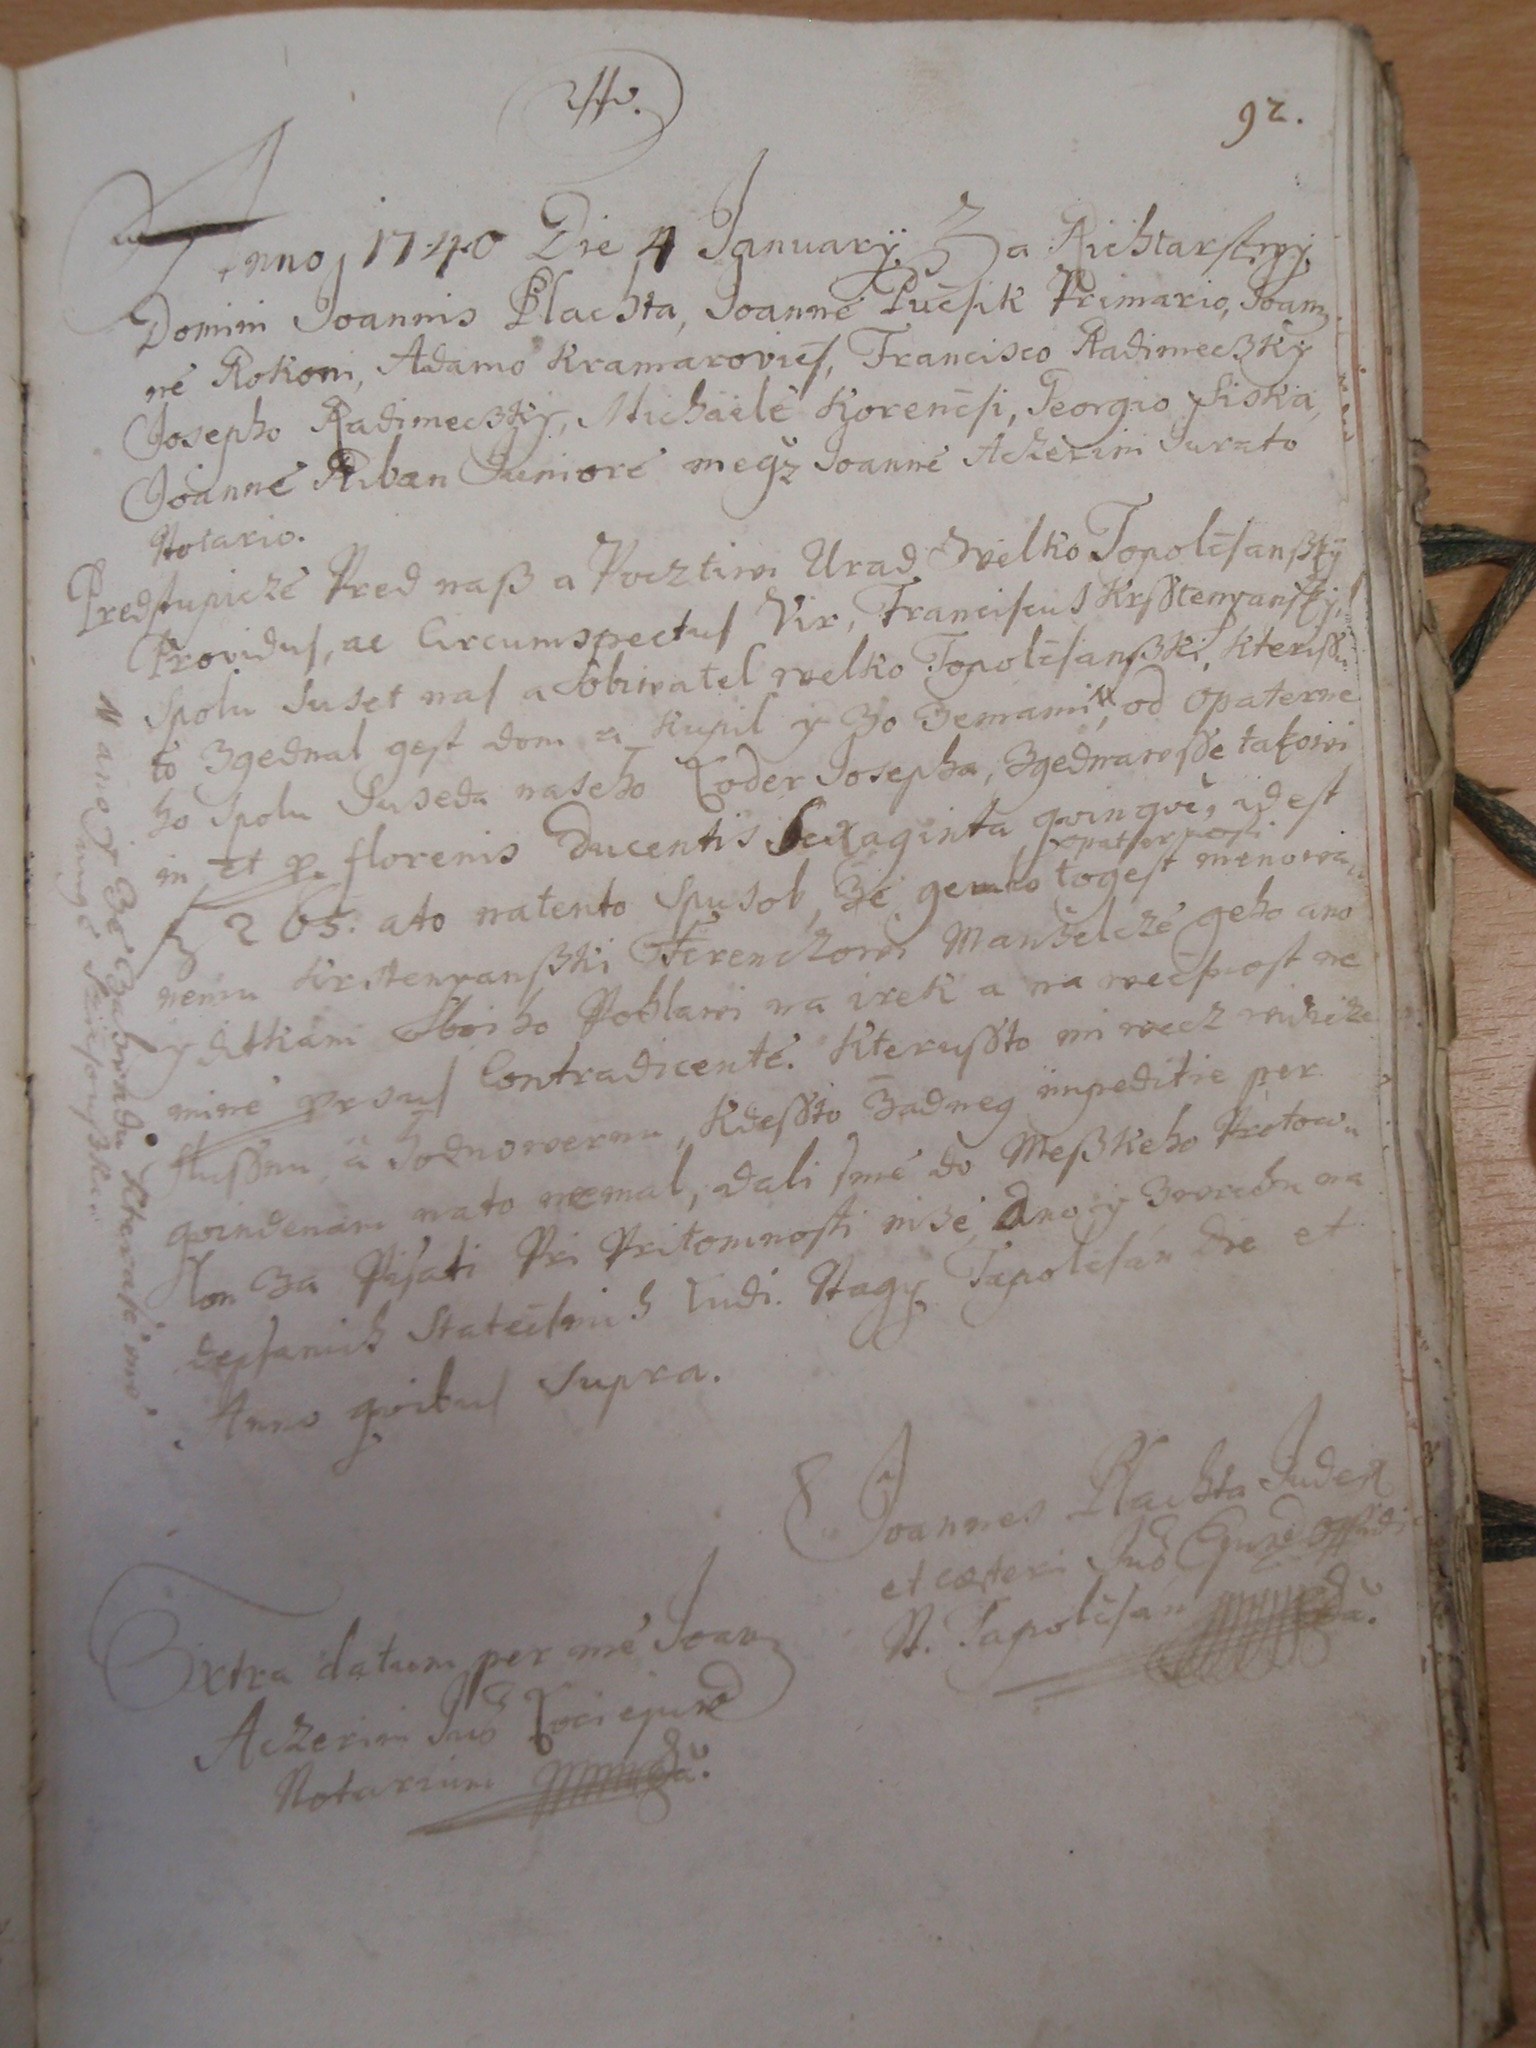 92.
Anno 1740 Die 4 January Za Richtarstwy
Domini Joannis Plachta, Joanne Pučsik Primario, Joan
ne Rokoni, Adamo Kramarovics, Francisco Radimeczky
Josepho Radimeczky, Michaele Korencsi, Georgio Siska,
Joanne Riban Juniore megz Joanne Aczerini Jurato
Notario.
Predstupicze Pred nass a Pocztiwi Urad Welko Topolcsanszky
Providus, ac Circumspectus Vir, Franciscus Krsstenyanszky,
Spolu Suset nas a Obiwatel welko Topolcsanszki, kterissu
to Zgednal gest dom a kupil y Zo Zemami, od Opaterne
ho Spolu Suseda naseho Loder Josepha, Zgednawsse takowi
in et p. florenis Ducentis Sexaginta qvinqve, id est
f 265: ato natento Spusob, Ze gemu togest menowa
opatrnosti
nemu Krstenyanszki Ferenczowi Manzelcze geho ano
y ditkam Oboiho Pohlawi na wek a na wečsnost ne
mine prsus Contradicente. Kterussto mi wecz widicze
slussnu, a hodnowernu, kdessto Zadneg impeditie per
qvindenam nato nemal, dali sme do Meszkeho Protocu
lon Za Pisati Pri Pritomnosti nize, Ano y Zwrchu na
depsanich Statecsnich Ludi. Nagy Tapolcsán Die et
Anno qvibus Supra.
Joannes Plachta Judex
et cæteri
N. Tapolcsán
Extra datum per me Joan
Aczerini
Notarium
N ano y Ze Zahradu